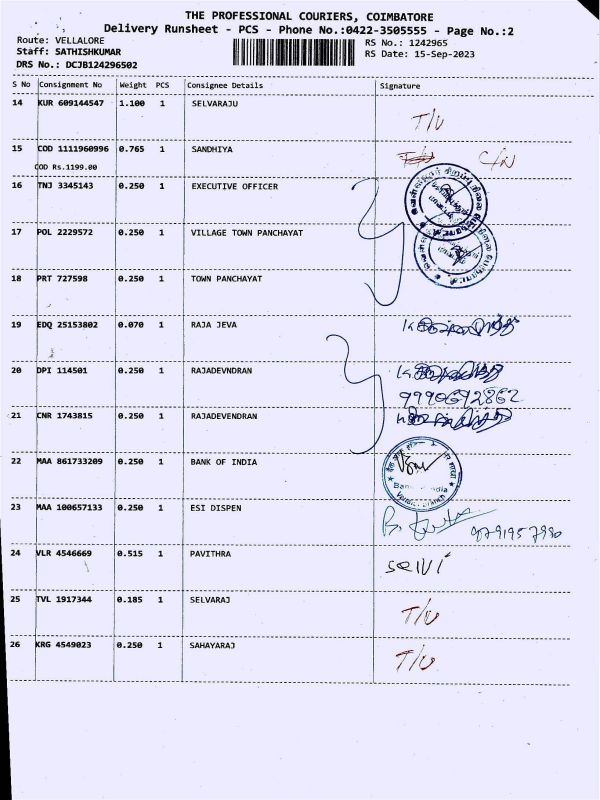 THE PROFESSIONAL COURIERS, COIMBATORE
Delivery Runsheet - PCS - Phone No.:0422-3505555 - Page No.:2
Route: VELLALORE
RS No.: 1242965
Staff: SATHISHKUMAR
RS Date: 15-Sep-2023
DRS No.: DCJB124296502
S No Consignment No Weight PCS Consignee Details Signature
14 KUR 609144547 1.100 1 SELVARAJU
T/U
15 COD 1111960996 0.765 1 SANDHIYA
COD Rs.1199.00
16 TNJ 3345143 0.250 1 EXECUTIVE OFFICER
17 POL 2229572 0.250 1 VILLAGE TOWN PANCHAYAT
18 PRT 727598 0.250 1 TOWN PANCHAYAT
19 EDQ 25153802 0.070 1 RAJA JEVA
20 DPI 114501 0.250 1 RAJADEVNDRAN
21 CNR 1743815 0.250 1 RAJADEVENDRAN
22 MAA 861733209 0.250 1 BANK OF INDIA
23 MAA 100657133 0.250 1 ESI DISPEN
24 VLR 4546669 0.515 1 PAVITHRA
selvi
25 TVL 1917344 0.185 1 SELVARAJ
T/U
26 KRG 4549023 0.250 1 SAHAYARAJ
T/U